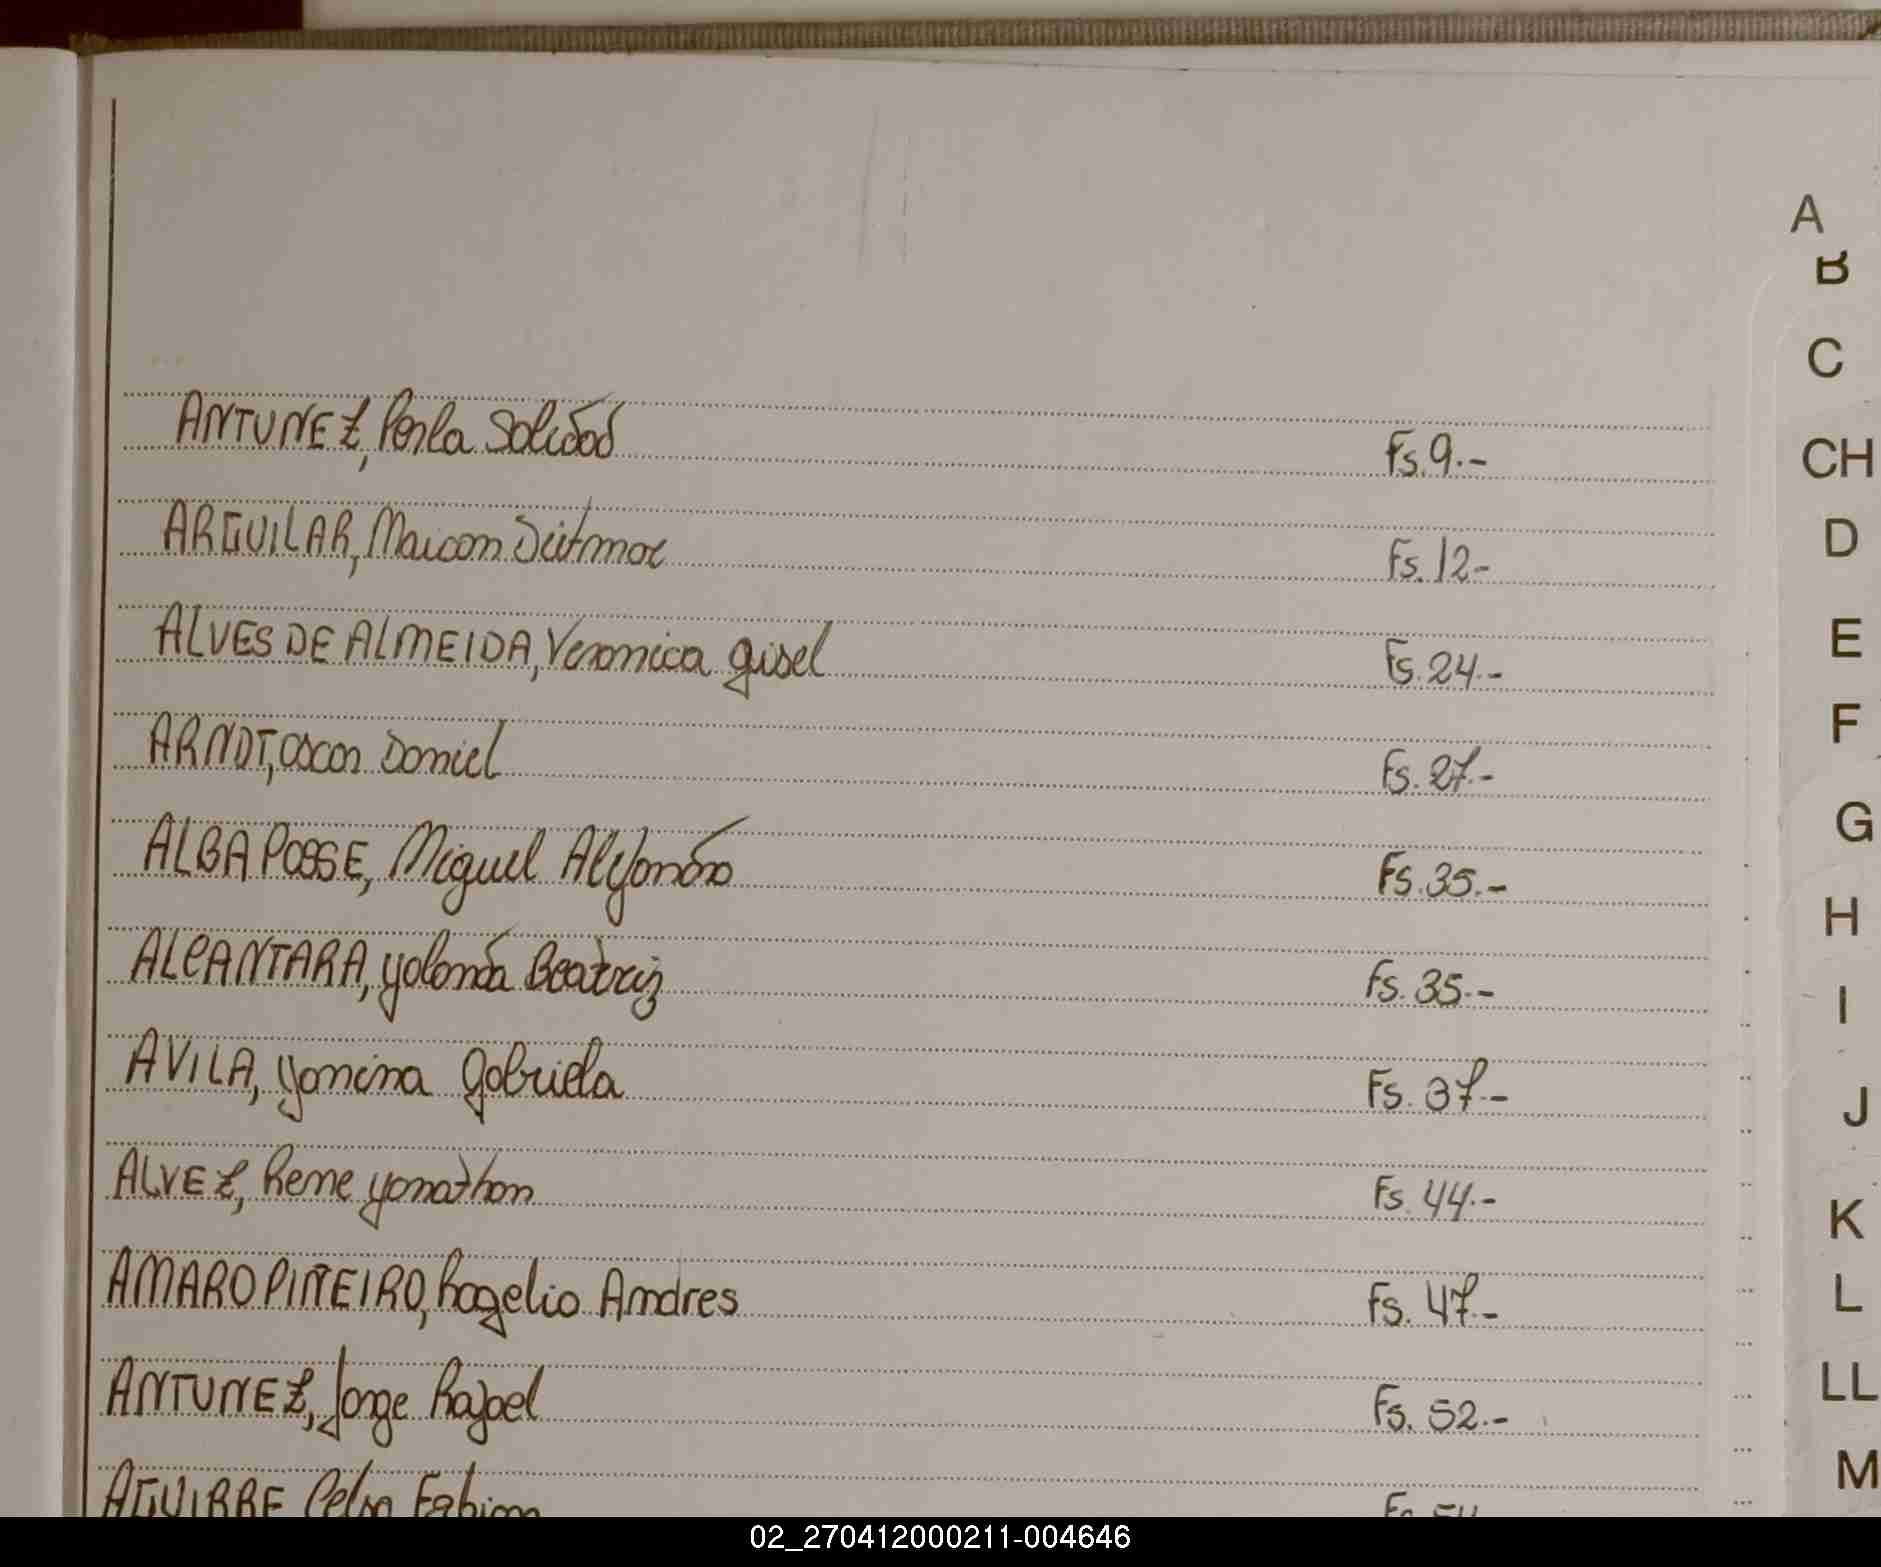 A
B
C
ANTUNEZ, Perla Soledad Fs. 9.-
CH
ARGUILAR, Maicon Deitmar Fs. 12-
D
ALVES DE ALMEIDA, Veronica Gisel Fs. 24.-
E
F
ARNDT, Oscar Daniel Fs. 27.-
G
ALBA POSSE, Miguel Alejandro Fs. 35.-
H
ALCANTARA, Yolanda Beatriz Fs. 35.-
I
AVILA, Yanina Gabriela Fs. 37.-
J
ALVEZ, Rene Yonathan Fs. 44.-
K
AMARO PIÑEIRO, Rogelio Andres Fs. 47.-
L
ANTUNEZ, Jorge Rafael Fs. 52.-
LL
M
AGUIRRE Celso Fabian Fs. 54
02_270412000211-004646